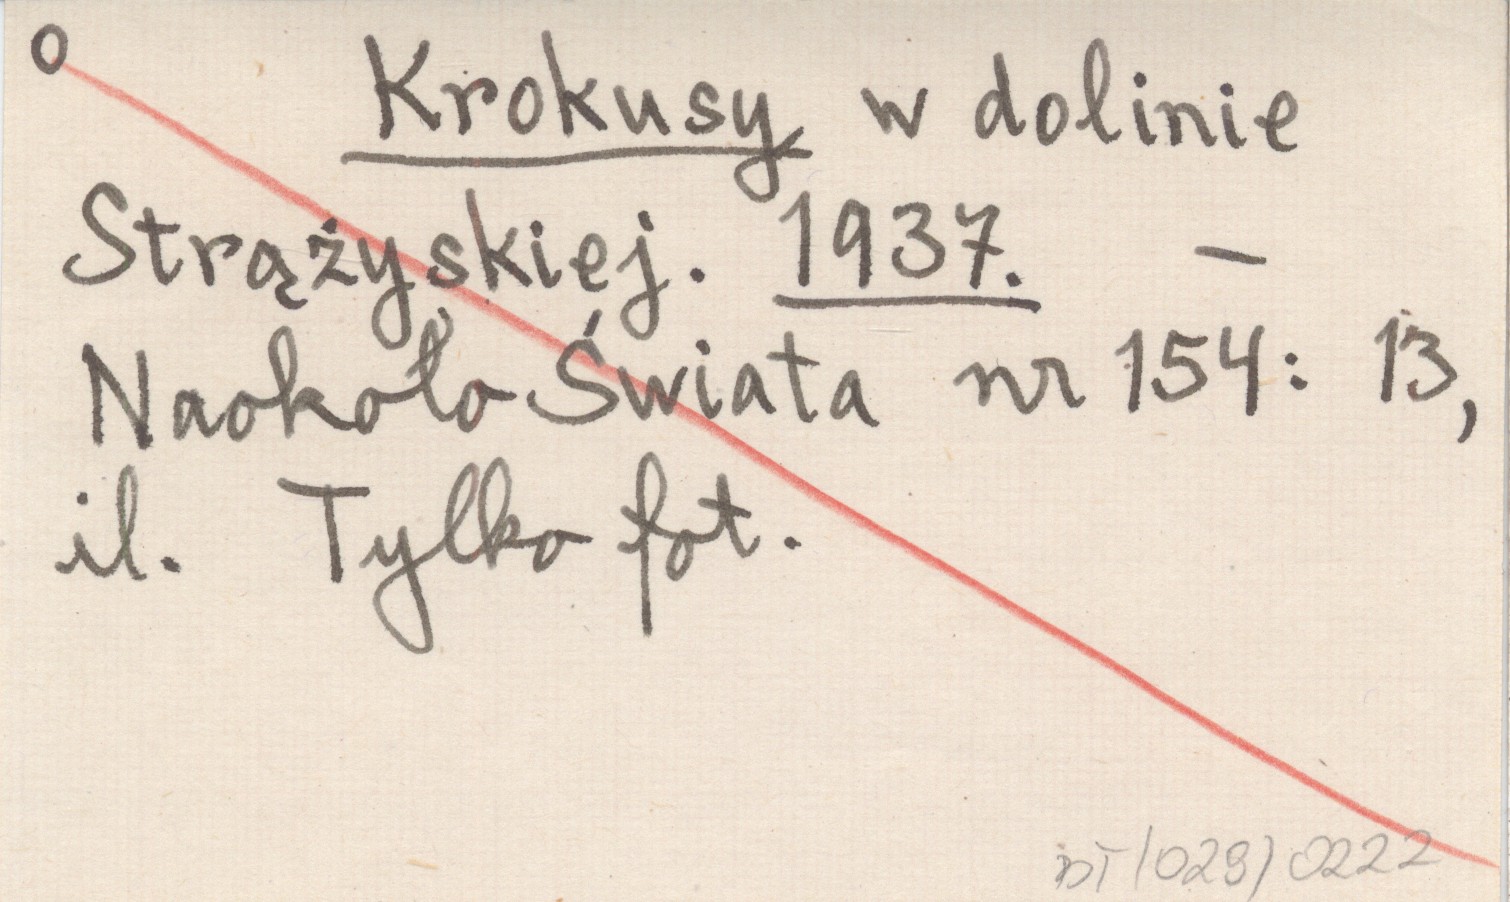 O
Krokusy w dolinie
Strążyskiej. 1937. –
Naokoło Świata nr 154: 13,
il. Tylko fot.
0222